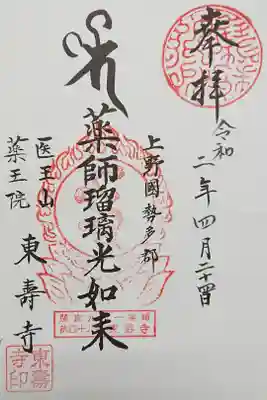 奉拝
令和二年四月二十四日
上野國勢多郡
薬師瑠璃光如来
医王山
薬王院
東壽寺
東壽寺印